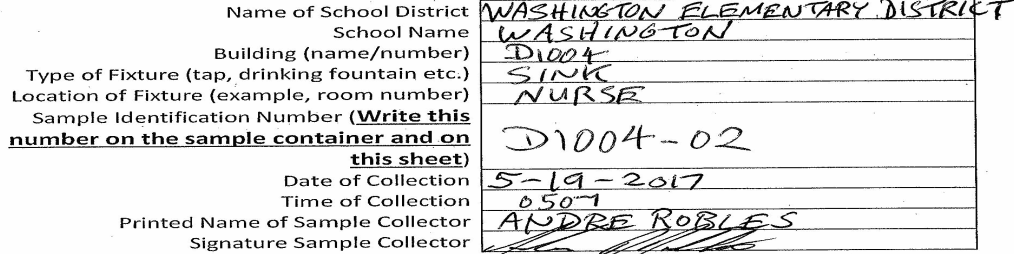 Name of School District WASHINGTON ELEMENTARY DISTRICT
School Name WASHINGTON
Building (name/number) D1004
Type of Fixture (tap, drinking fountain etc.) SINK
Location of Fixture (example, room number) NURSE
Sample Identification Number (Write this
number on the sample container and on
this sheet) D1004-02
Date of Collection 5-19-2017
Time of Collection 0507
Printed Name of Sample Collector ANDRE ROBLES
Signature Sample Collector